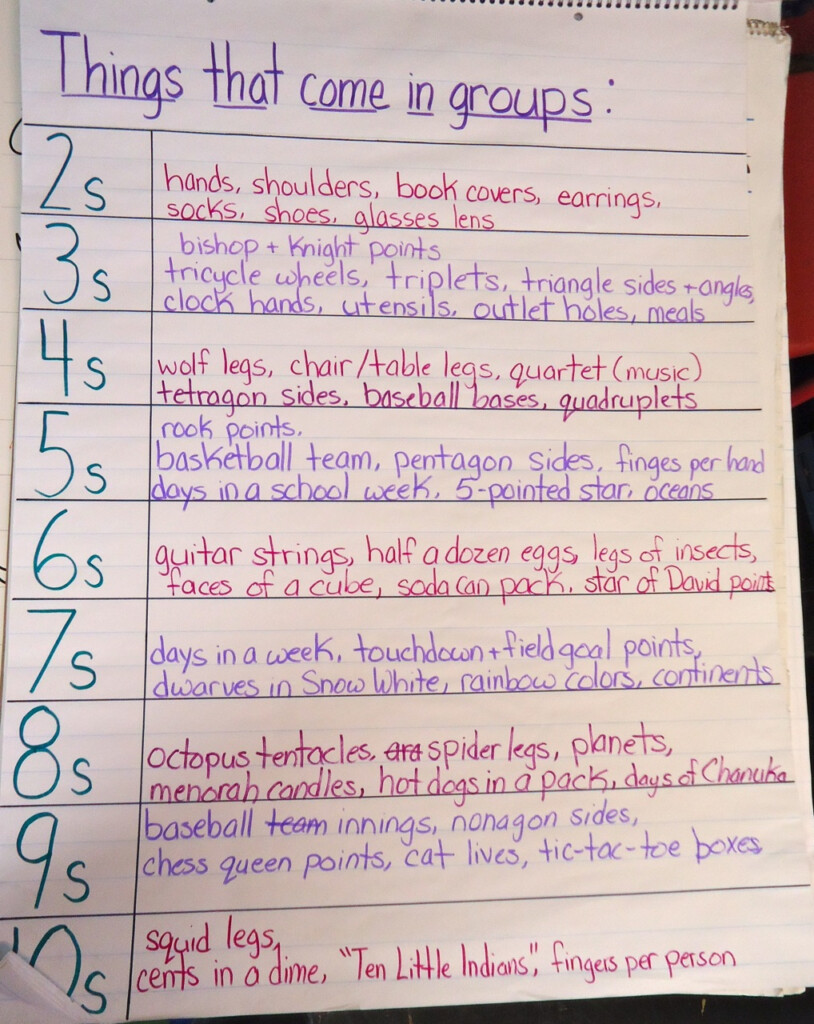 Things that come in groups:
2s
hands, shoulders, book covers, earrings,
socks, shoes, glasses lens
3s
bishop + knight points
tricycle wheels, triplets, triangle sides + angles,
clock hands, utensils, outlet holes, meals
4s
wolf legs, chair/table legs, quartet (music)
tetragon sides, baseball bases, quadruplets
5s
rook points,
basketball team, pentagon sides, finges per hand
days in a school week, 5-pointed star, oceans
6s
guitar strings, half a dozen eggs, legs of insects,
faces of a cube, soda can pack, star of David points
7s
days in a week, touchdown + field goal points,
dwarves in Snow White, rainbow colors, continents
8s
octopus tentacles, ara spider legs, planets,
menorah candles, hot dogs in a pack, days of Chanuka
9s
baseball team innings, nonagon sides,
chess queen points, cat lives, tic-tac-toe boxes
10s
squid legs,
cents in a dime, "Ten Little Indians", fingers per person